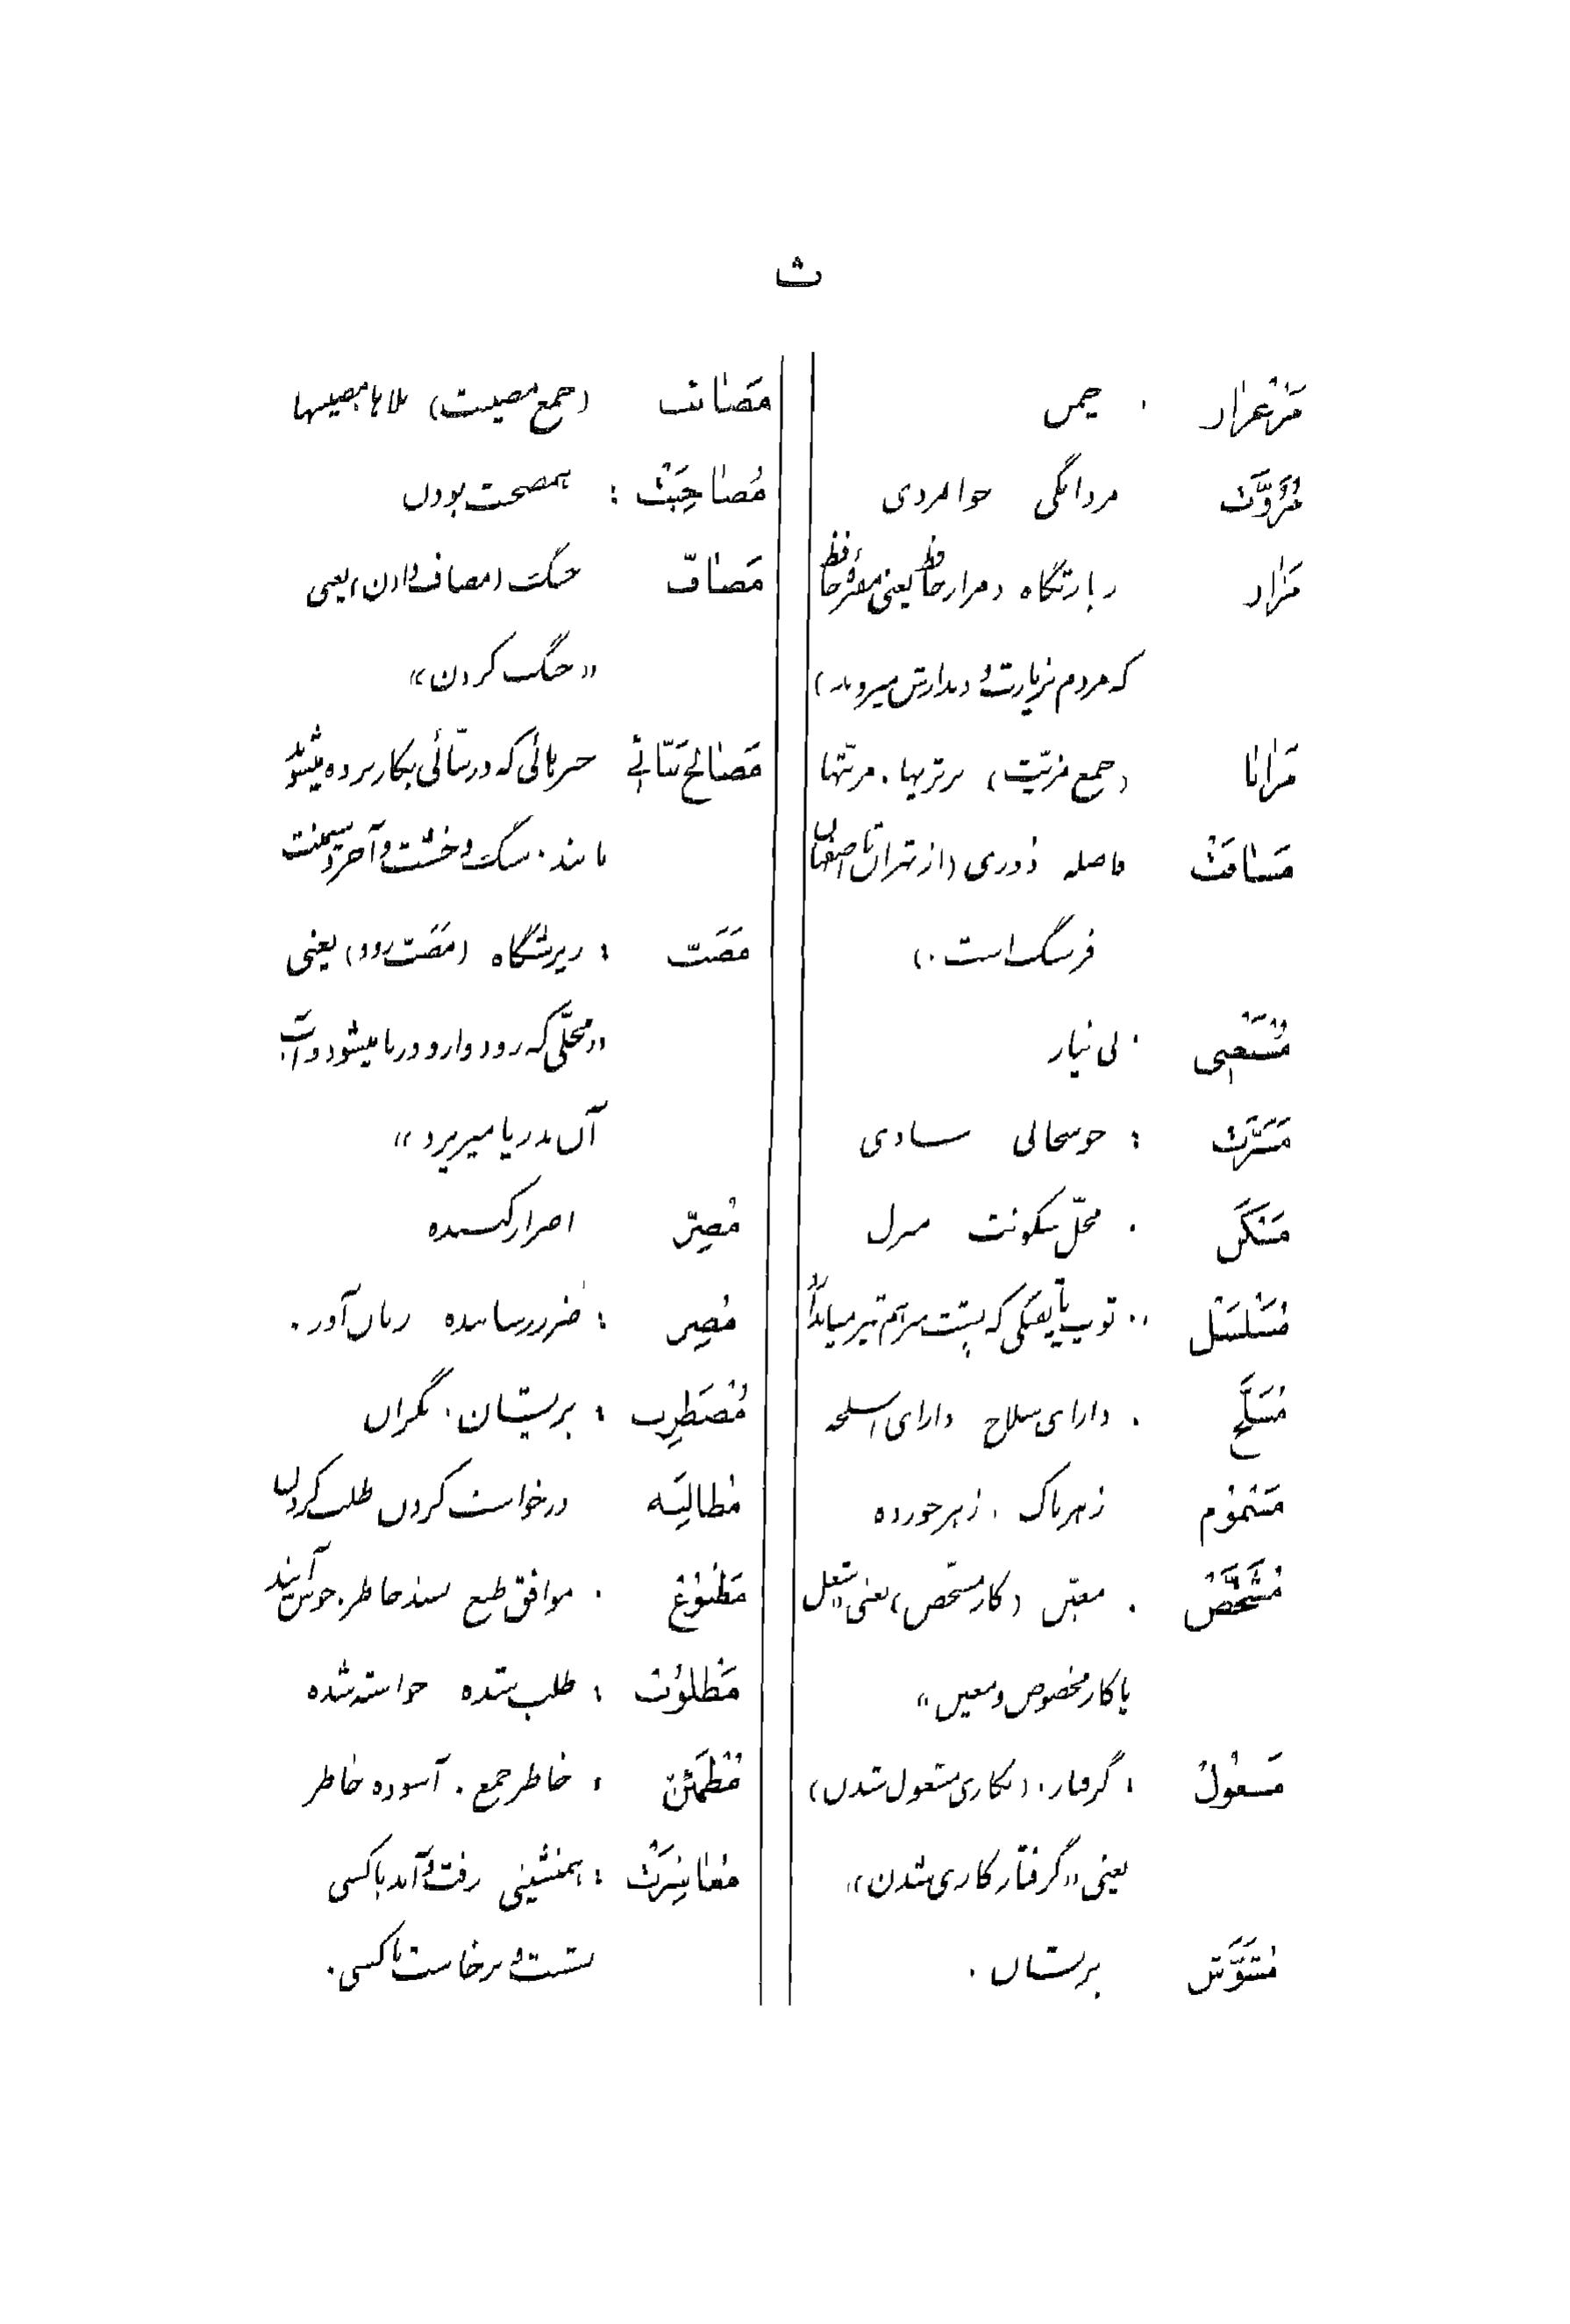 ث
مَرْغزار : چمن
مُرُوَّت مردانگی جوانمردی
مَزار زیارتگاه (مزار حافظ یعنی مقبرۀ حافظ
که مردم بزیارت و دیدارش میروند)
مَزایا (جمع مزیّت) برتریها. مزیّتها
مَسافَتْ فاصله دوری (از تهران تا اصفهان
فرسنگ است.)
مُسْتَغْنی : بی نیاز
مَسَرَّت : خوشحالی شادی
مَسْکَن : محلّ سکونت منزل
مُسَلْسَل : توپ یا تفنگی که پشت سر هم تیر میاندازد
مُسَلَّح : دارای سلاح دارای اسلحه
مَسْمُوْم زهرناک . زهر خورده
مُشَخَّصْ : معیّن (کار مشخّص) یعنی «شغل
یا کار مخصوص و معین»
مَشغُولْ : گرفتار. (بکاری مشغول شدن)
یعنی «گرفتار کاری شدن»
مُشَوَّش پریشان .
مَصائب (جمع مصیبت) بلاها مصیبتها
مُصاحِبَتْ : همصحبت بودن
مَصافّ جنگ (مصاف دادن) یعنی
«جنگ کردن»
مَصالح بَنّائی چیزهائی که در بنّائی بکار برده میشود
مانند. سنگ و خشت و آجر و سیمنت
مَصَبّ : ریزشگاه (مَصَبّ رود) یعنی
«محلّی که رود وارد دریا میشود و آب
آن بدریا میریزد»
مُصِرّ اصرار کننده
مُضِر : ضرر رساننده زیان آور .
مُضْطَرِب : پریشان . نگران
مُطالِبَه درخواست کردن طلب کردن
مَطْبُوْعْ . موافق طبع پسند خاطر. خوش آیند
مَطْلُوْب : طلب شده خواسته شده
مُطْمَئِنّ : خاطر جمع . آسوده خاطر
مُعاشِرَتْ : همنشینی رفت و آمد با کسی
نشست و برخاست با کسی .